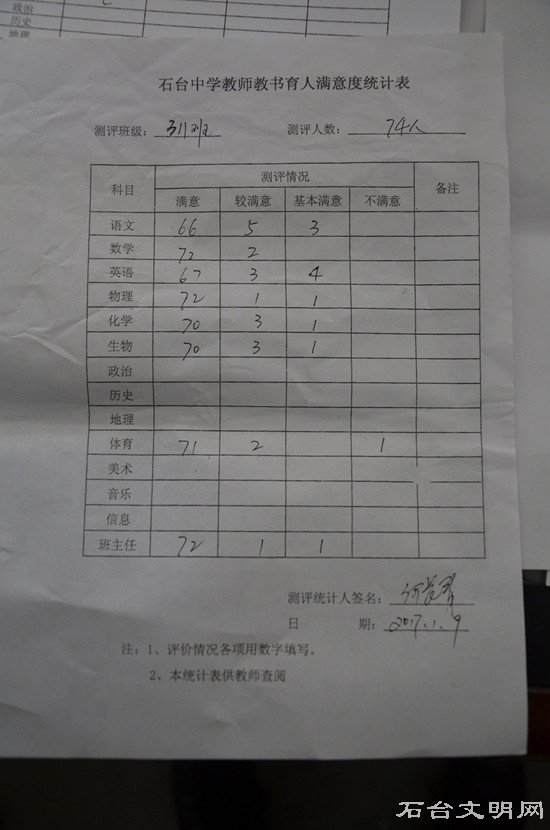 政治
历史
地理
石台中学教师教书育人满意度统计表
测评班级： 311班 测评人数： 74人
科目 测评情况 备注
满意 较满意 基本满意 不满意
语文 66 5 3
数学 72 2
英语 67 3 4
物理 72 1 1
化学 70 3 1
生物 70 3 1
政治
历史
地理
体育 71 2 1
美术
音乐
信息
班主任 72 1 1
测评统计人签名：
日 期： 2017.1.9
注：1、评价情况各项用数字填写。
2、本统计表供教师查阅
石台文明网